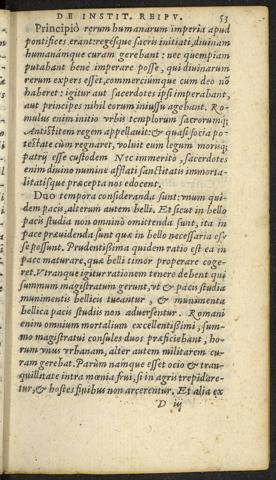 DE INSTIT. REIPV. 53
Principiò rerum humanarum imperia apud
pontifices erant: regésque sacris initiati, diuinam
humanámque curam gerebant: nec quempiam
putabant benè imperare posse, qui diuinarum
rerum expers esset, commerciúmque cum deo nō
haberet: igitur aut sacerdotes ipsi imperabant,
aut principes nihil eorum iniussu agebant. Ro-
mulus enim initio vrbis templorum sacrorumq;
Antistitem regem appellauit: & quasi socia po-
testate cùm regnaret, voluit eum legum morūq;
patrij esse custodem Nec immeritò, sacerdotes
enim diuino numine afflati sanctitatis immorta-
litatisque præcepta nos edocent.
Duo tempora consideranda sunt: vnum qui-
dem pacis, alterum autem belli. Et sicut in bello
pacis studia non omninò omittenda sunt, ita in
pace præuidenda sunt quæ in bello necessaria es-
se possunt. Prudentissima quidem ratio est ea in
pace maturare, quæ belli timor properare coge-
ret. Vtranque igitur rationem tenere debent qui
summum magistratum gerunt, vt & pacis studia
munimentis bellicis tueantur, & munimenta
bellica pacis studiis non aduersentur. Romani
enim omnium mortalium excellentissimi, sum-
mo magistratui consules duos præficiebant, ho-
rum vnus vrbanam, alter autem militarem cu-
ram gerebat. Parùm nanque esset ocio & tran-
quillitate intra mœnia frui, si in agris trepidare-
tur, & hostes finibus non arcerentur. Et alia ex
D iij